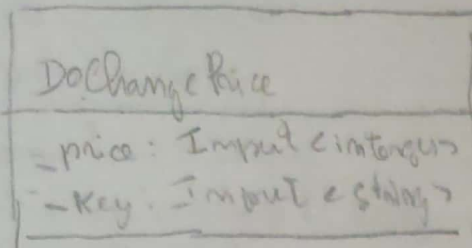 DoChangePrice
- price: Input <integer>
- Key: Input <string>